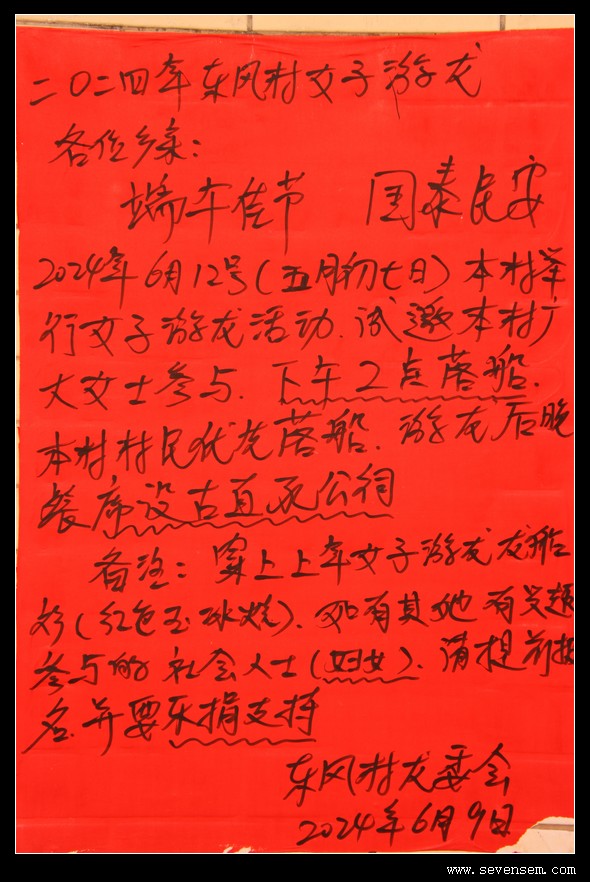 二〇二四年东风村女子游龙
各位乡亲:
端午佳节 国泰民安
2024年6月12号(五月初七日)本村举
行女子游龙活动.诚邀本村广
大女士参与.下午2点落船.
本村村民优先落船.游龙后晚
餐席设古直公祠
备注:穿上上年女子游龙龙船
衫(红色玉冰烧).如有其她有兴趣
参与的社会人士(妇女).请提前报
名并要乐捐支持
东风村龙委会
2024年6月9日
www.sevensem.com